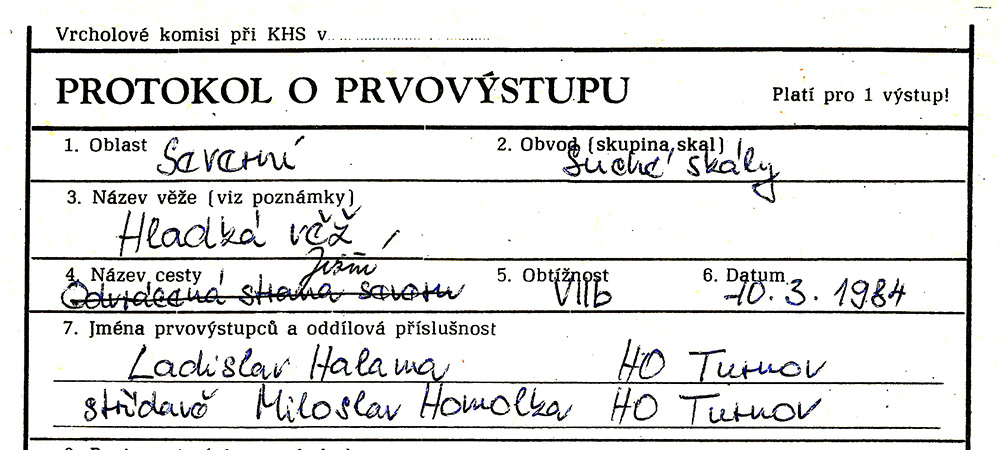 Vrcholové komisi při KHS v
PROTOKOL O PRVOVÝSTUPU Platí pro 1 výstup!
1. Oblast Severní 2. Obvod (skupina skal) Suché skály
3. Název věže (viz poznámky)
Hladká věž
4. Název cesty 5. Obtížnost VIIb 6. Datum 10. 3. 1984
Odvrácená strana severu
7. Jména prvovýstupců a oddílová příslušnost
Ladislav Halama HO Turnov
střídavě Miloslav Homolka HO Turnov